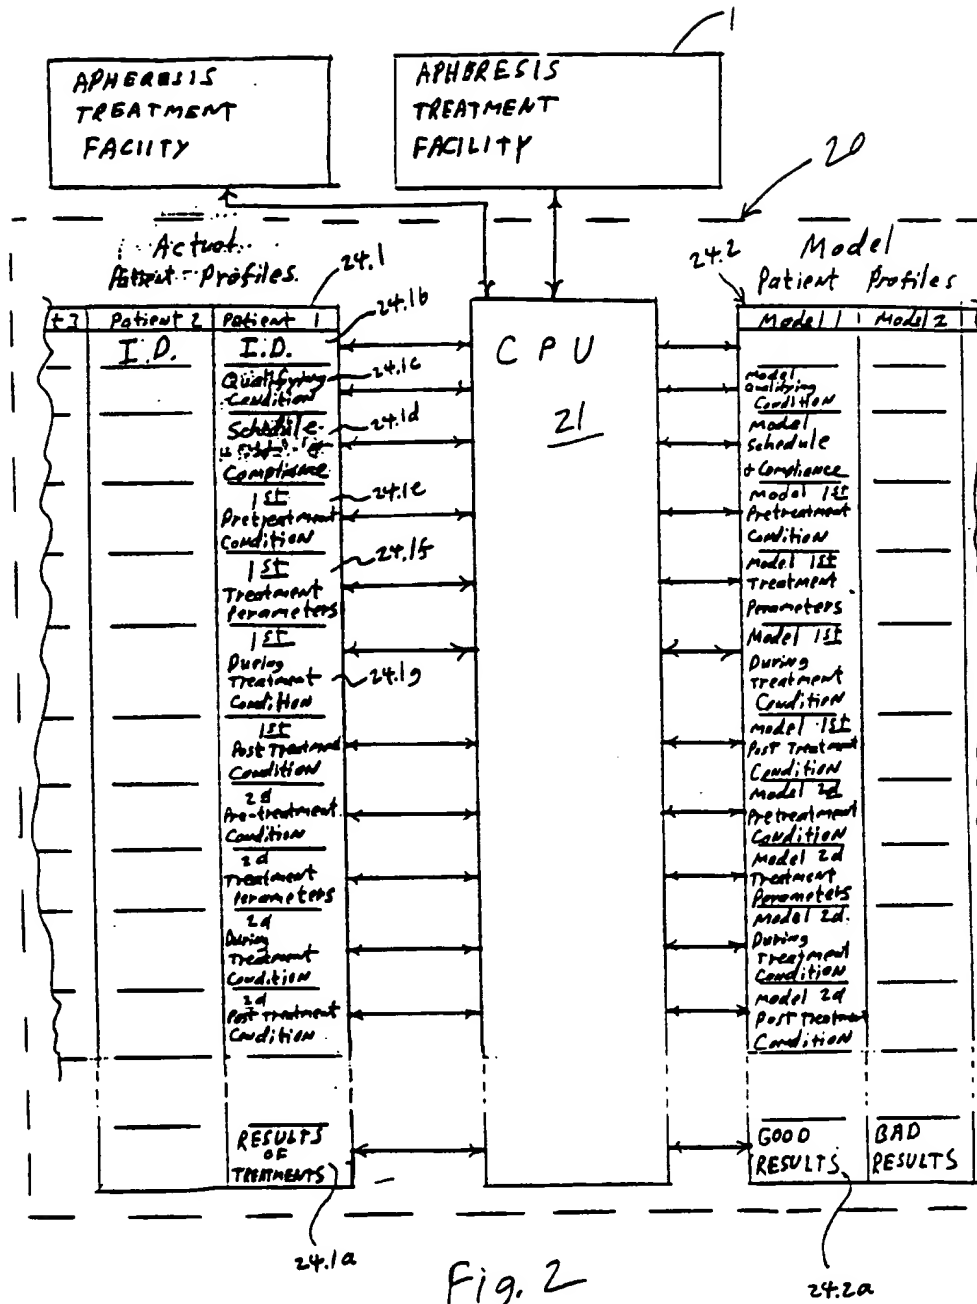 1
APHERESIS
TREATMENT
FACIITY
APHERESIS
TREATMENT
FACILITY
20
Actual
Patient Profiles.
24.1
24.2
Model
Patient Profiles
t 3
Patient 2
Patient 1
24.1b
Model 1
Model 2
I.D.
I.D.
CPU
21
Qualifying
Condition
24.1c
Schedule
Compliance
24.1d
1st
Pretreatment
Condition
24.1e
1st
Treatment
Perameters
24.1f
1st
During
Treatment
Condition
24.1g
1st
Post Treatment
Condition
2d
Pre-treatment
Condition
2d
Treatment
Perameters
2d
During
Treatment
Condition
2d
Post Treatment
Condition
RESULTS
OF
TREATMENTS
24.1a
Model
Qualifying
Condition
Model
Schedule
+ Compliance
Model 1st
Pretreatment
Condition
Model 1st
Treatment
Perameters
Model 1st
During
Treatment
Condition
Model 1st
Post Treatment
Condition
Model 2d
Pretreatment
Condition
Model 2d
Treatment
Perameters
Model 2d.
During
Treatment
Condition
Model 2d
Post Treatment
Condition
GOOD
RESULTS
BAD
RESULTS
24.2a
Fig. 2